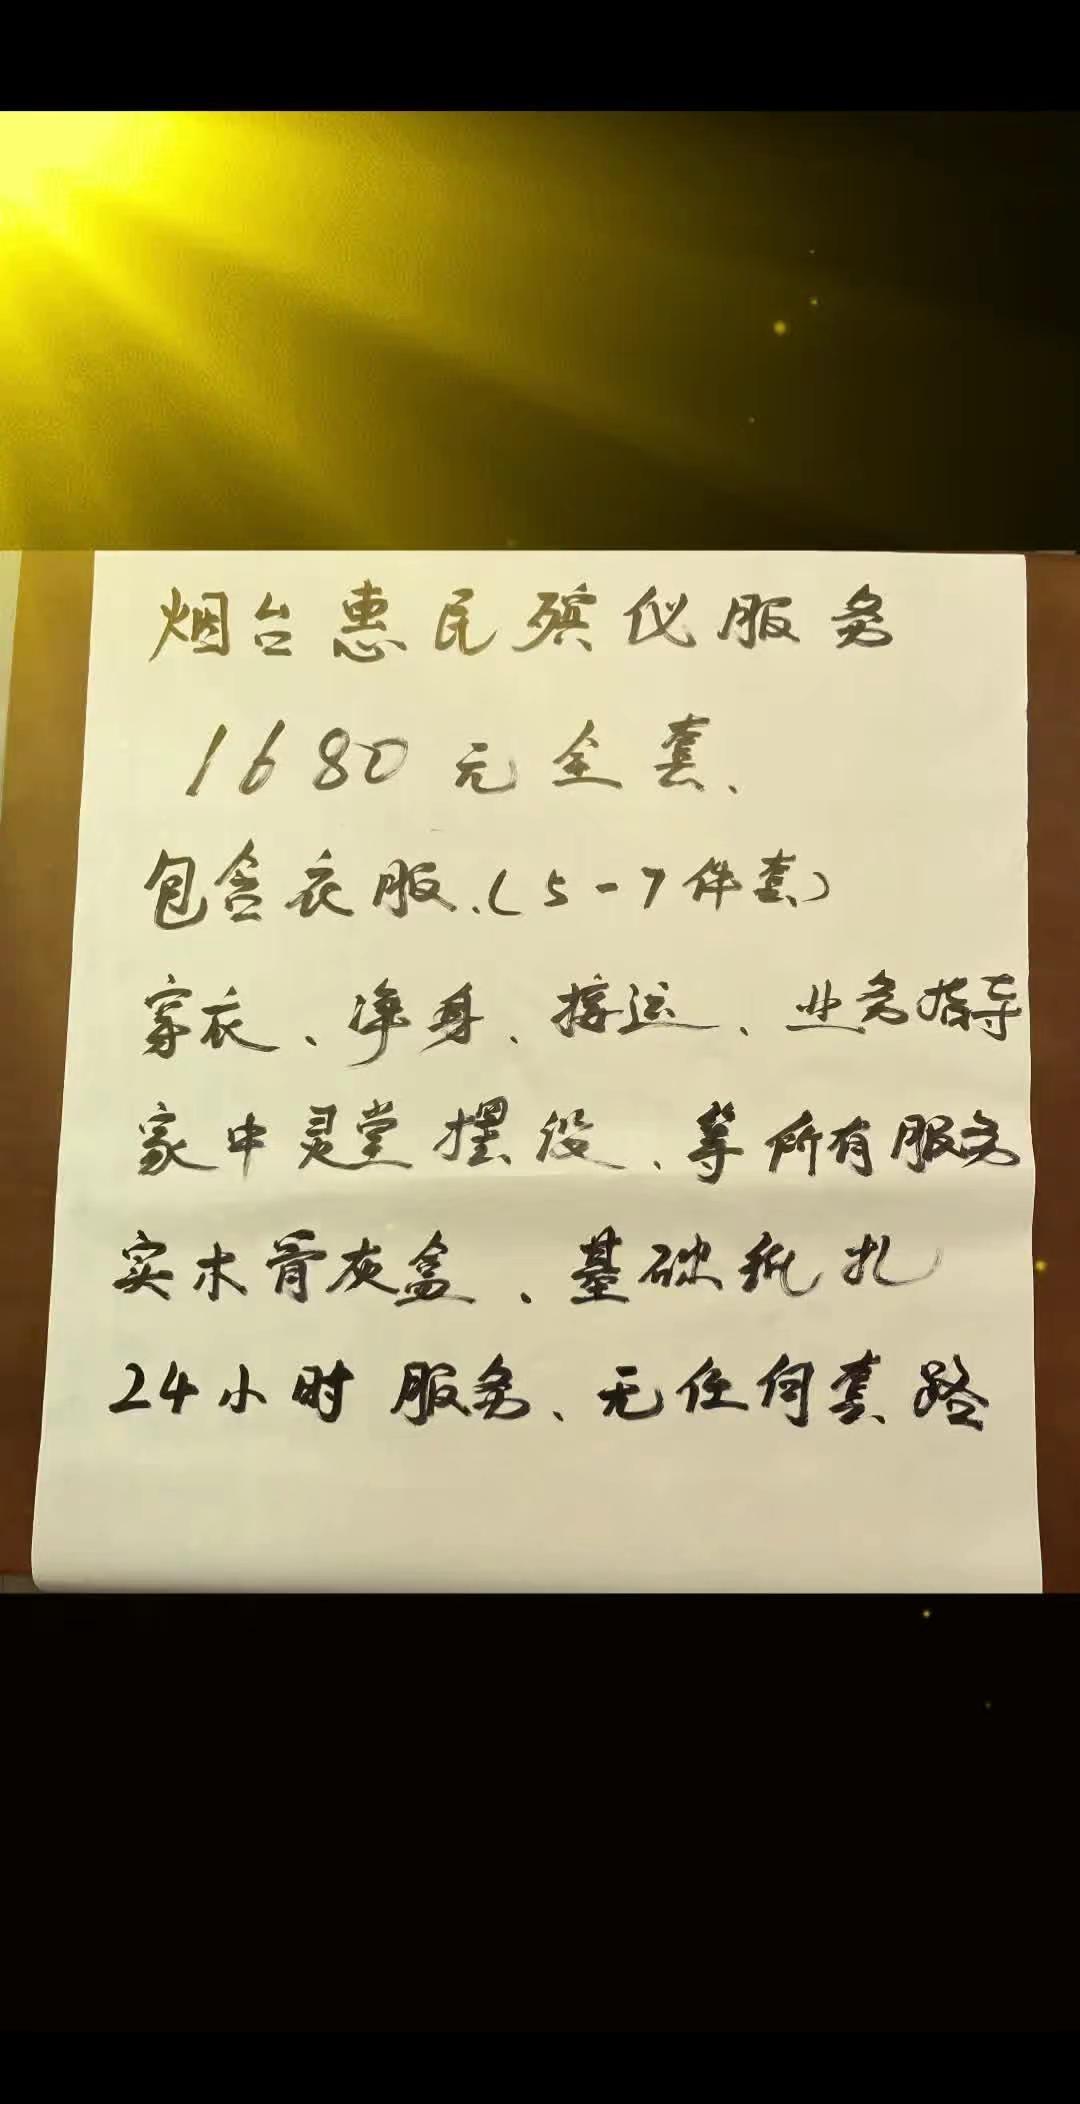 烟台惠民殡仪服务
1680元全套、
包含衣服、(5-7件套)
穿衣、净身、接运、业务指导
家中灵堂摆设、等所有服务
实木骨灰盒、基础纸扎
24小时服务、无任何套路